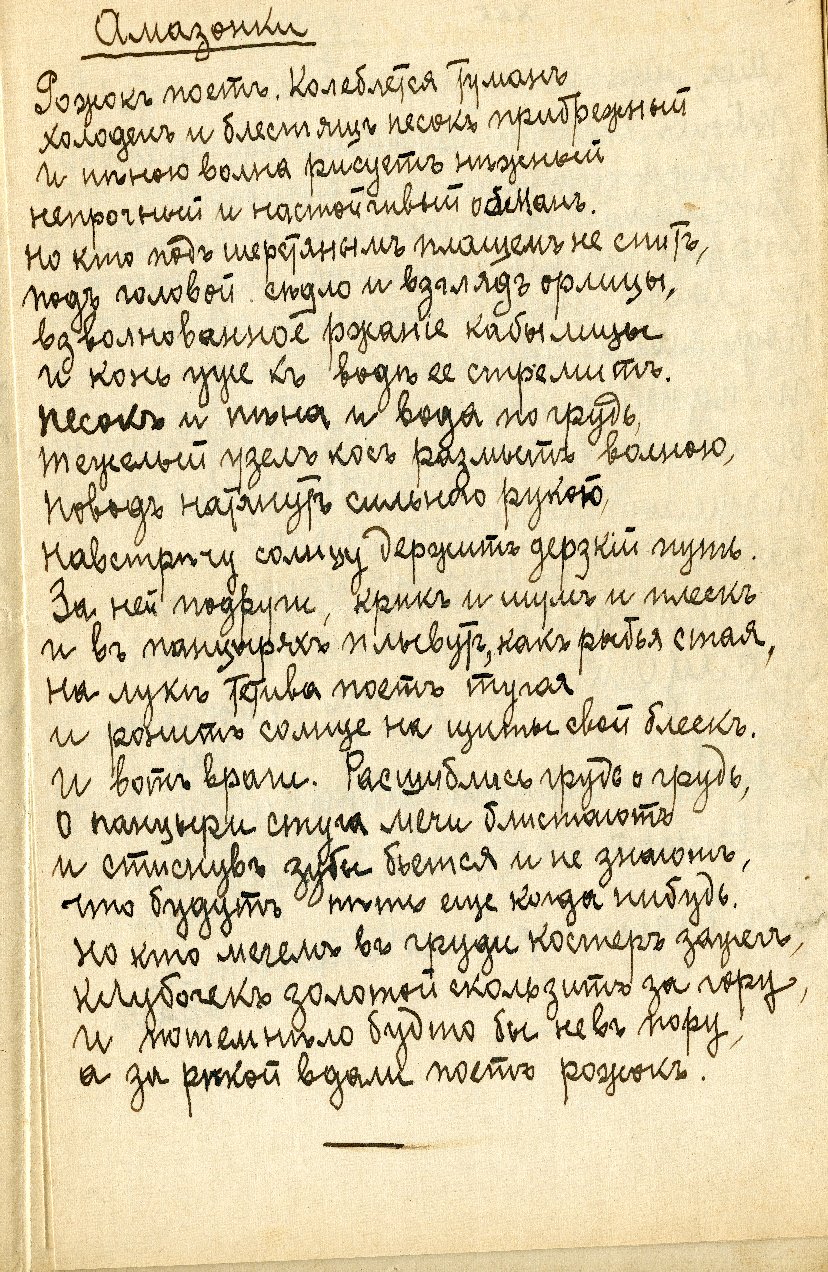 Амазонки
Рожокъ поетъ. Колеблется туманъ
холоденъ и блестящъ песокъ прибрежный
и пѣною волна рисуетъ нѣжный
непрочный и настойчивый обманъ.
Но кто подъ шерстянымъ плащемъ не спитъ,
подъ головой сѣдло и взглядъ орлицы,
взволнованное ржанiе кабылицы
и конь уже къ водѣ ее стремитъ.
Песокъ и пѣна и вода по грудь,
тежелый узелъ косъ размытъ волною,
поводъ натянутъ сильною рукою,
навстрѣчу солнцу держитъ дерзкiй путь.
За ней подруги, крикъ и шумъ и плескъ
и въ панцыряхъ плывутъ, какъ рыбья стая,
на лукѣ тетива поетъ тугая
и ронитъ солнце на щиты свой блескъ.
И вотъ враги. Расшиблись грудь о грудь,
о панцыри стуча мечи блистаютъ
и стиснувъ зубы бьется и не знаютъ,
что будутъ пѣть еще когда нибудь.
Но кто мечемъ въ груди костеръ зажегъ,
клубочекъ золотой скользитъ за гору,
и потемнѣло будто бы невъ пору,
а за рѣкой вдали поетъ рожокъ.